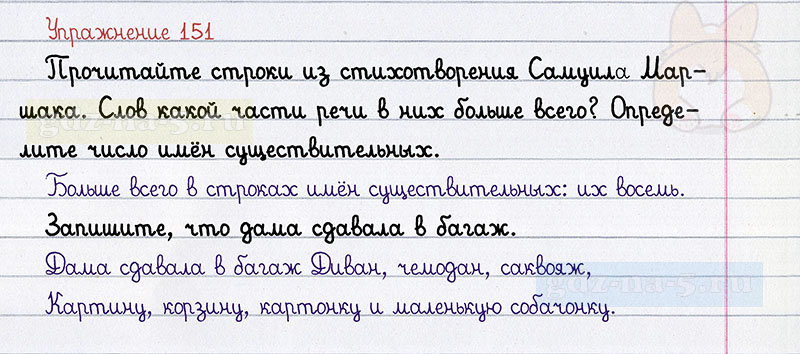 Упражнение 151
Прочитайте строки из стихотворения Самуила Мар-
шака. Слов какой части речи в них больше всего? Опреде-
лите число имён существительных.
gdz-na-5.ru
Больше всего в строках имён существительных: их восемь.
Запишите, что дама сдавала в багаж.
Дама сдавала в багаж Диван, чемодан, саквояж,
gdz-na-5.ru
Картину, корзину, картонку и маленькую собачонку.